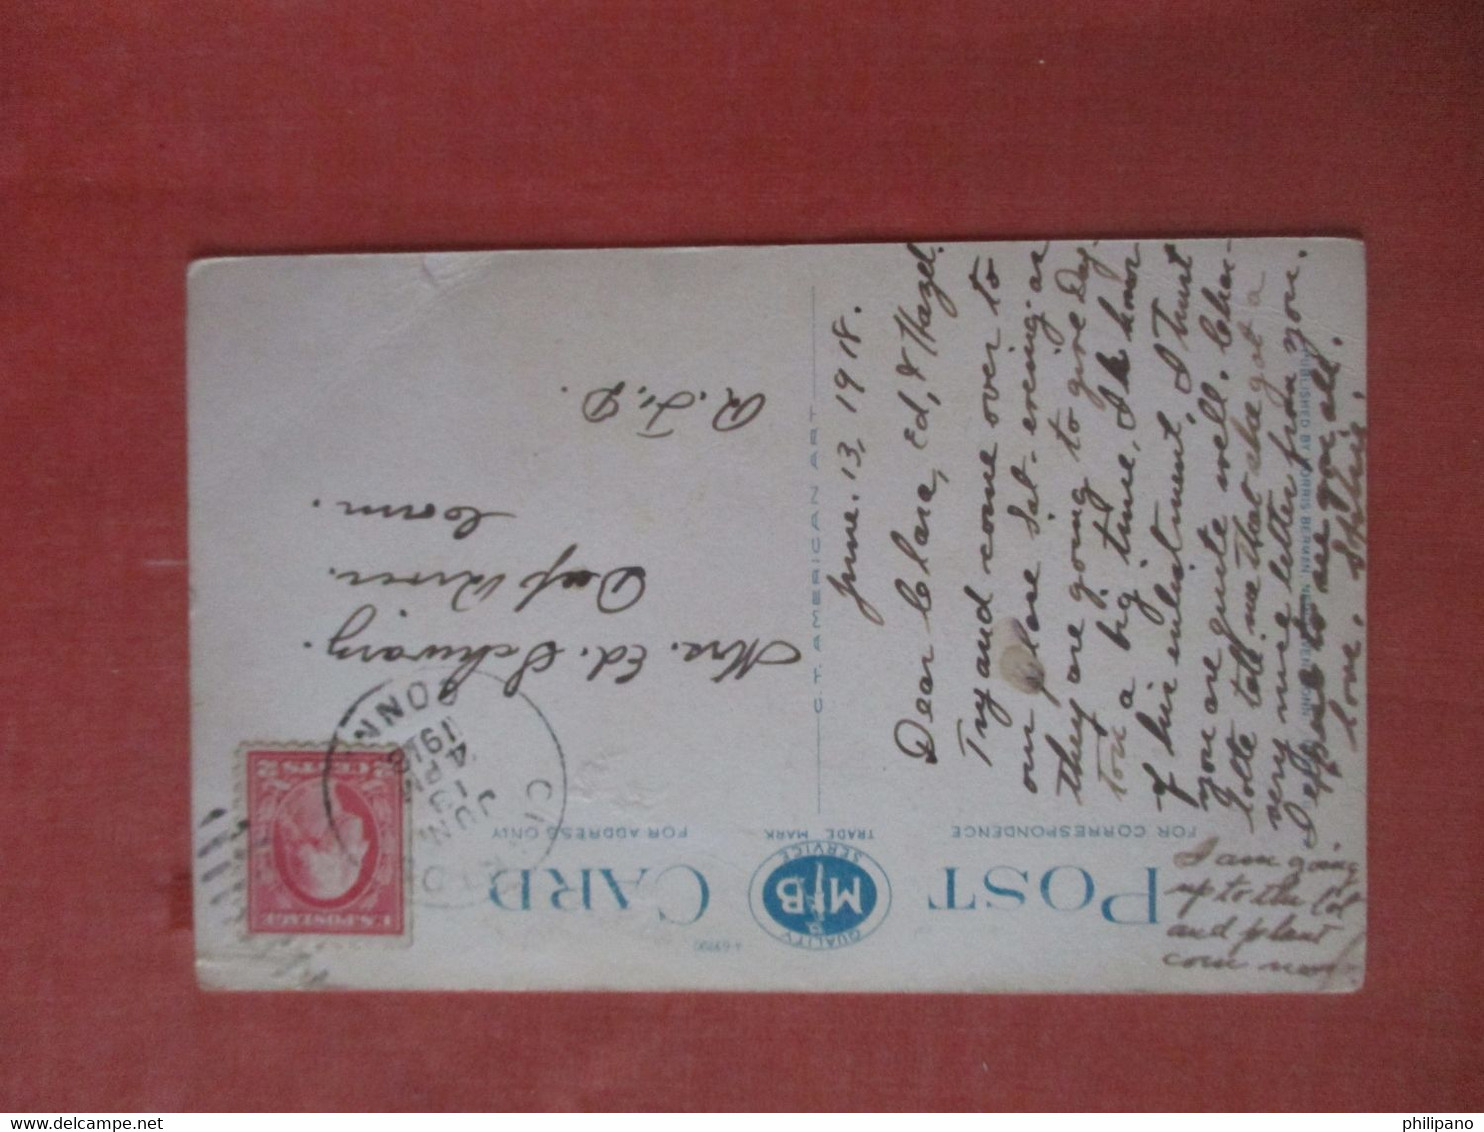 POST CARD
FOR CORRESPONDENCE
TRADE MARK
FOR ADDRESS ONLY
QUALITY
M B
SERVICE
C.T. AMERICAN ART
June. 13, 1918.
Dear Clara, Ed, & Hazel.
Try and come over to
our place Sat. evening. as
they are going to give Day-
ton a big time, in honor
of his enlistment, I trust
you are quite well. Char-
lotte told me that she got a
very nice letter from you.
I expect to see you all.
Love, Sophie.
I am going
up to the lot
and plant
corn now.
Mrs. Ed. Schwarz.
Deep River.
Conn.
R.F.D.
CONN.
JUN
14
4 PM
1918
U.S. POSTAGE
2 CENTS 2
philipano
delcampe.net